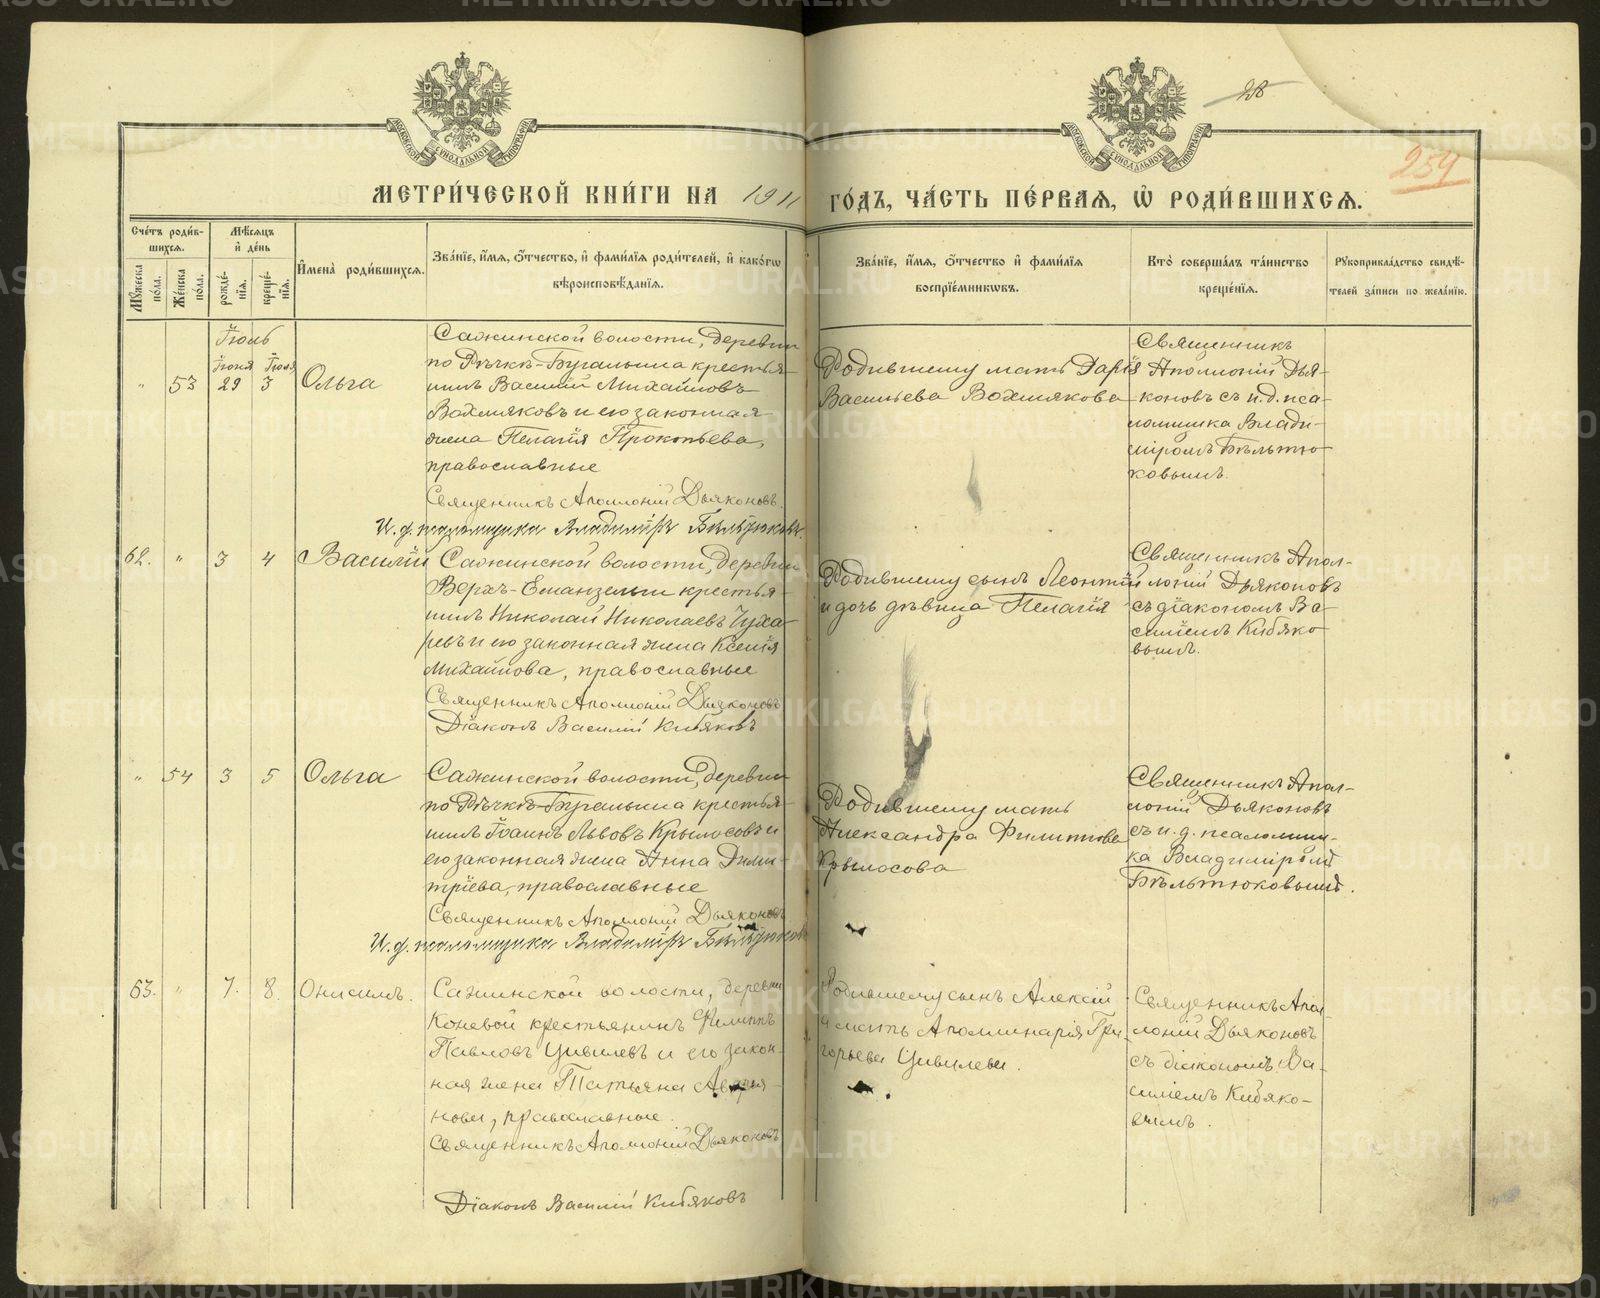 28
254
МОСКОВСКОЙ СѴНОДАЛЬНОЙ ТИПОГРАФІИ
МОСКОВСКОЙ СѴНОДАЛЬНОЙ ТИПОГРАФІИ
МЕТРИ́ЧЕСКОЙ КНИ́ГИ НА 1911 ГО́ДЪ, ЧА́СТЬ ПЕ́РВАѦ, Ѽ РОДИ́ВШИХСѦ.
Сче́тъ роди́в-
шихсѧ.
Мꙋ́жеска
по́ла.
Же́нска
по́ла.
Мѣ́сѧцъ
и҆ де́нь
рожде́-
нїѧ.
креще́-
нїѧ.
И҆мена̀ роди́вшихсѧ.
Зва́нїе, и҆́мѧ, ѻ҆́тчество, и҆ фами́лїѧ роди́телей, и҆ како́гѡ
вѣроисповѣ́данїѧ.
Зва́нїе, и҆́мѧ, ѻ҆́тчество и҆ фами́лїѧ
воспрїе́мникѡвъ.
Кто̀ соверша́лъ та́инство
креще́нїѧ.
Рꙋкоприкла́дство свидѣ́-
телей за́писи по жела́нїю.
Іюль
Іюня Іюля
" 53 29 3 Ольга
Сажинской волости, деревни
по Рѣчкѣ-Бугалыша крестья-
нинъ Василій Михайловъ
Вохмяковъ и его законная
жена Пелагія Прокопьева,
православные
Священникъ Аполлоній Дьяконовъ.
И. д. псаломщика Владиміръ Бѣльтюковъ.
Родившему мать Дарія
Васильева Вохмякова
Священникъ
Аполлоній Дья-
коновъ съ и.д. пса-
ломщика Влади-
міромъ Бѣльтю-
ковымъ.
62. " 3 4 Василій
Сажинской волости, деревни
Верхъ-Еманзельги крестья-
нинъ Николай Николаевъ Чуха-
ревъ и его законная жена Ксенія
Михайлова, православные
Священникъ Аполлоній Дьяконовъ
Діаконъ Василій Кибяковъ
Родившему сынъ Леонтій
и дочь дѣвица Пелагія
Священникъ Апол-
лоній Дьяконовъ
съ діакономъ Ва-
силіемъ Кибяко-
вымъ.
" 54 3 5 Ольга
Сажинской волости, деревни
по Рѣчкѣ-Бугалыша крестья-
нинъ Іоаннъ Львовъ Крылосовъ и
его законная жена Анна Дими-
тріева, православные
Священникъ Аполлоній Дьяконовъ
И. д. псаломщика Владиміръ Бѣльтюковъ
Родившему мать
Александра Филиппова
Крылосова
Священникъ Апол-
лоній Дьяконовъ
съ и. д. псаломщи-
ка Владиміромъ
Бѣльтюковымъ.
63. " 7. 8. Онисимъ.
Сажинской волости, деревни
Коневой крестьянинъ Филиппъ
Павловъ Цивилевъ и его закон-
ная жена Татьяна Аверья-
нова, православные.
Священникъ Аполлоній Дьяконовъ
Діаконъ Василій Кибяковъ
Родившему сынъ Алексій
и мать Аполлинарія Гри-
горьева Цивилева.
Священникъ Апол-
лоній Дьяконовъ
съ діакономъ Ва-
силіемъ Кибяко-
вымъ.
METRIKI.GASO-URAL.RU